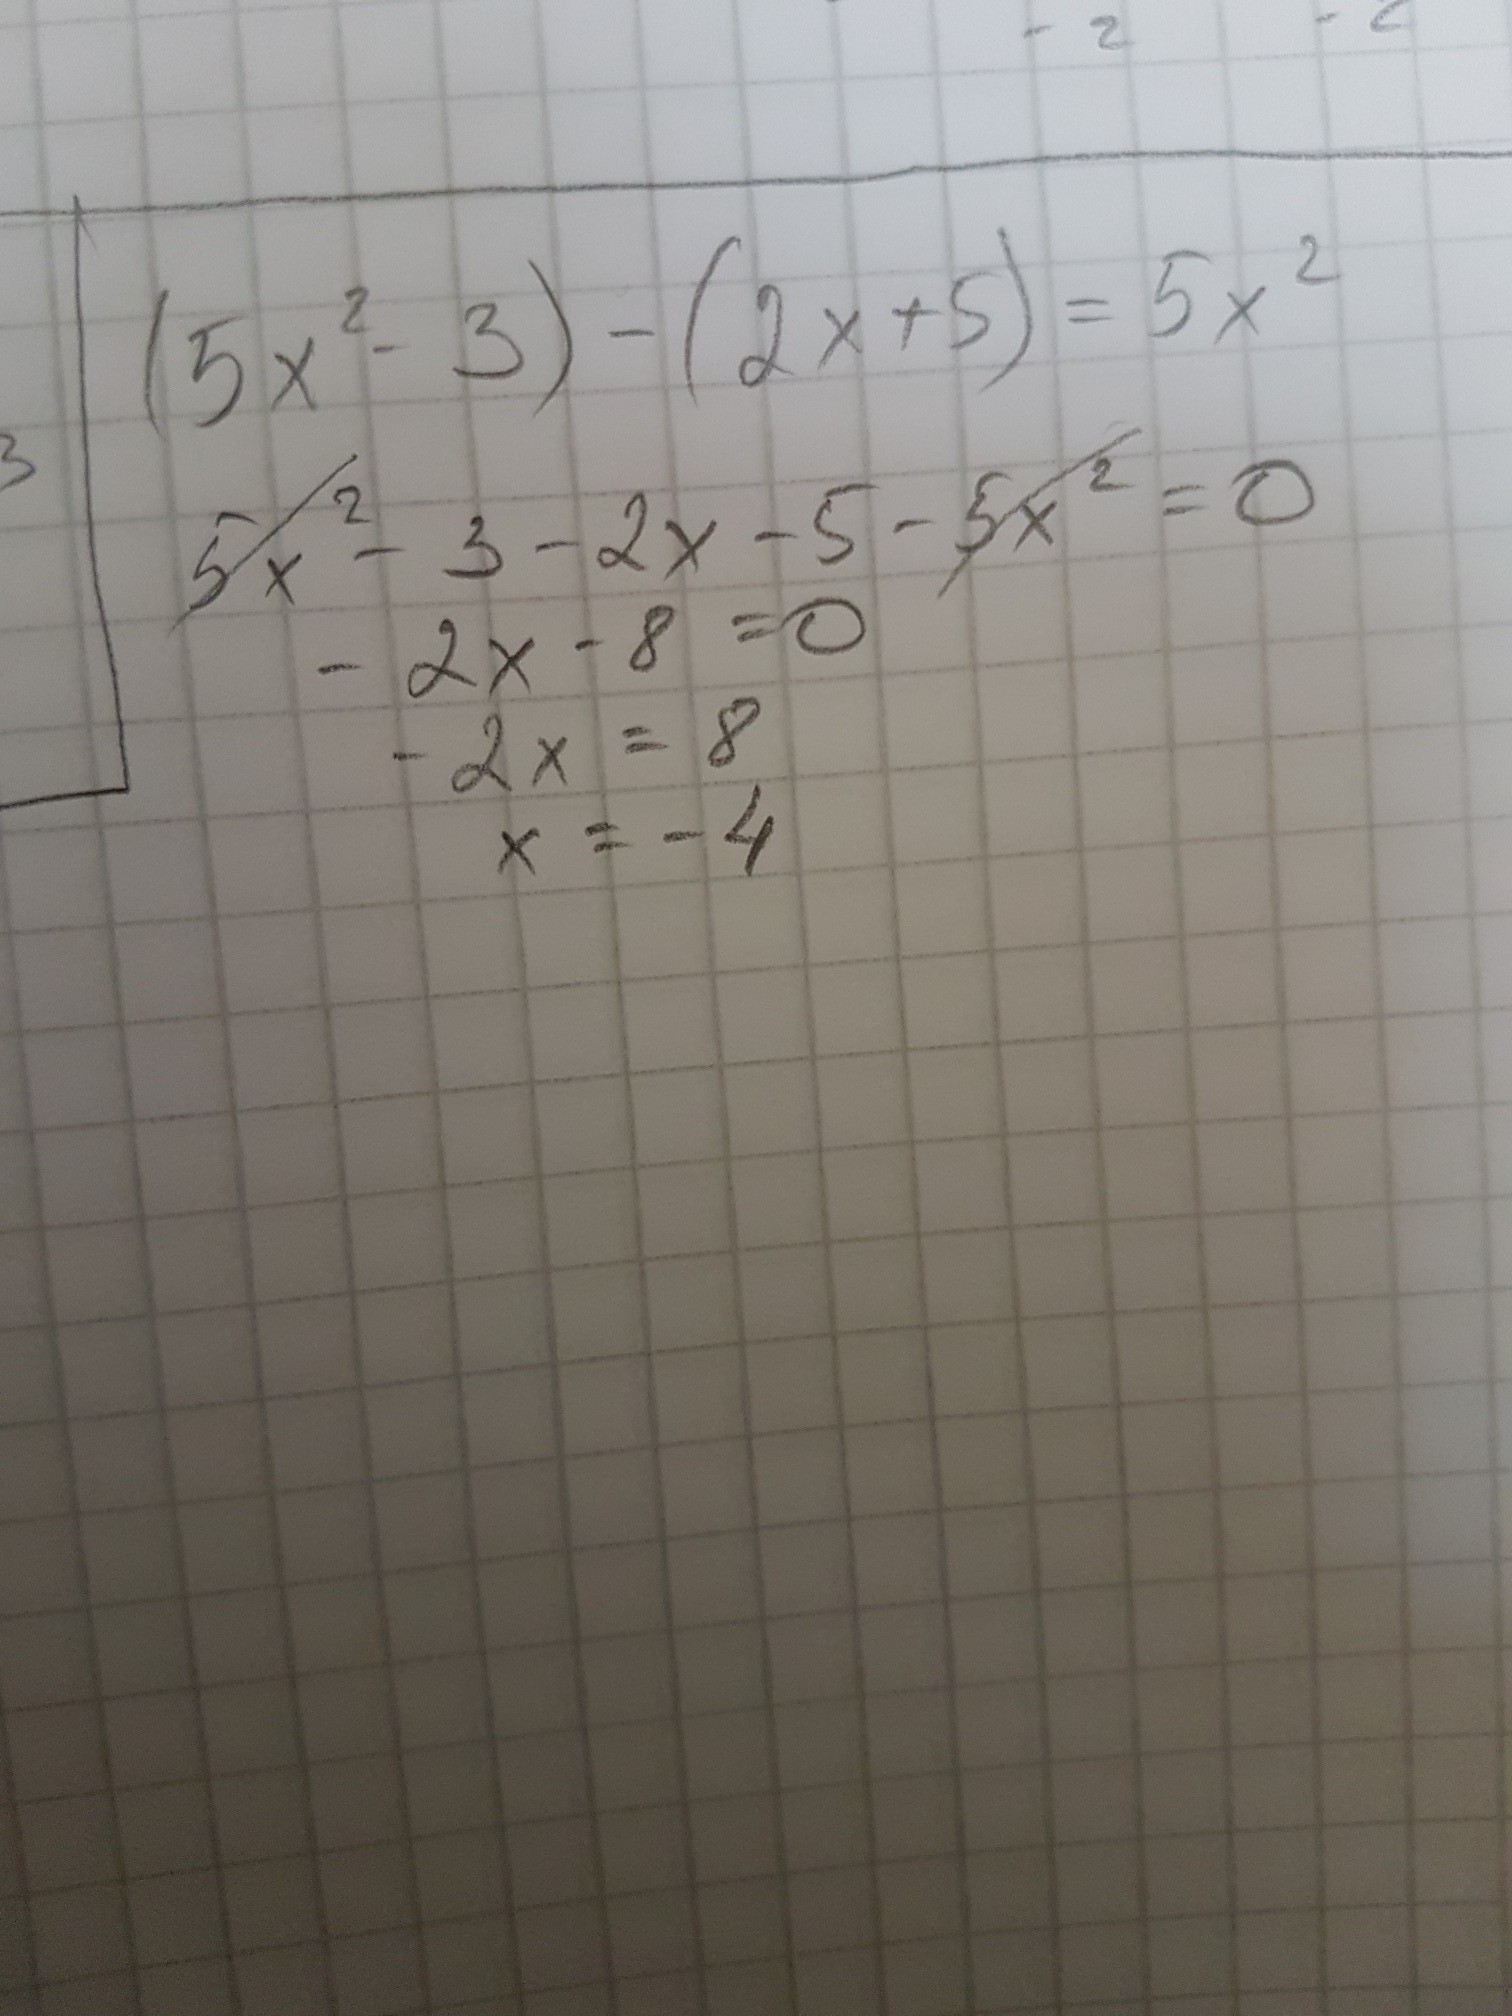 - 2 - 2
(5x² - 3) - (2x + 5) = 5x²
3
5x² - 3 - 2x - 5 - 5x² = 0
- 2x - 8 = 0
- 2x = 8
x = - 4